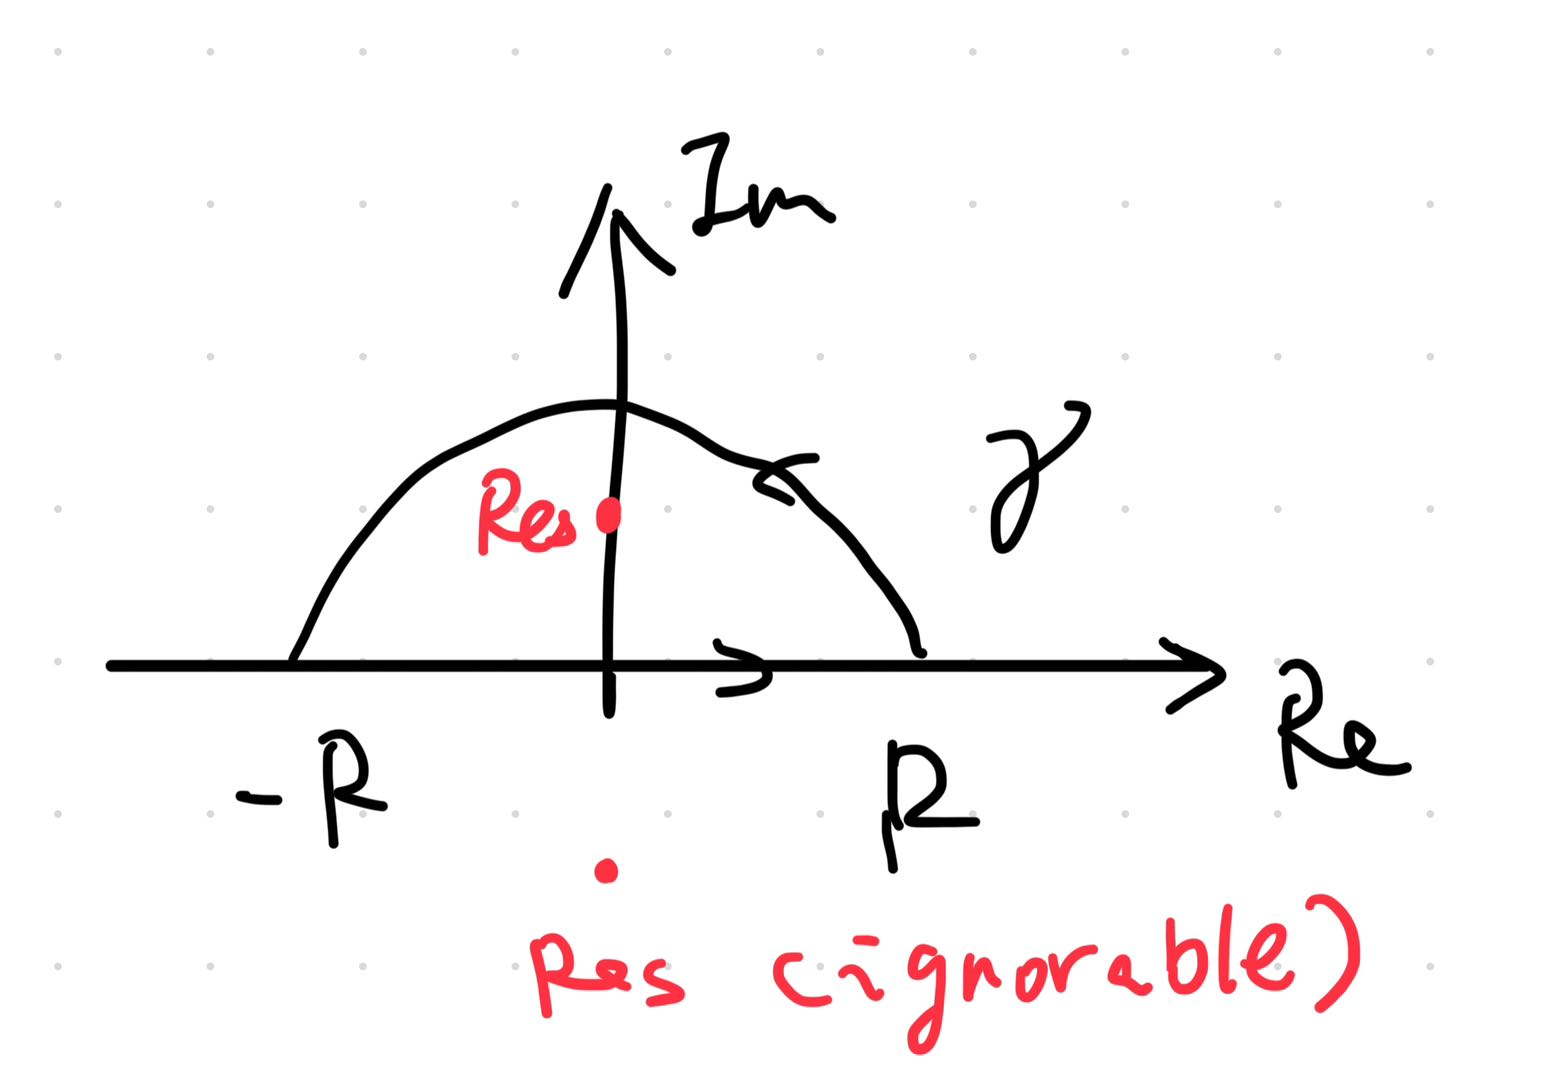 Im
γ
Res
Re
-R
R
Res (ignorable)